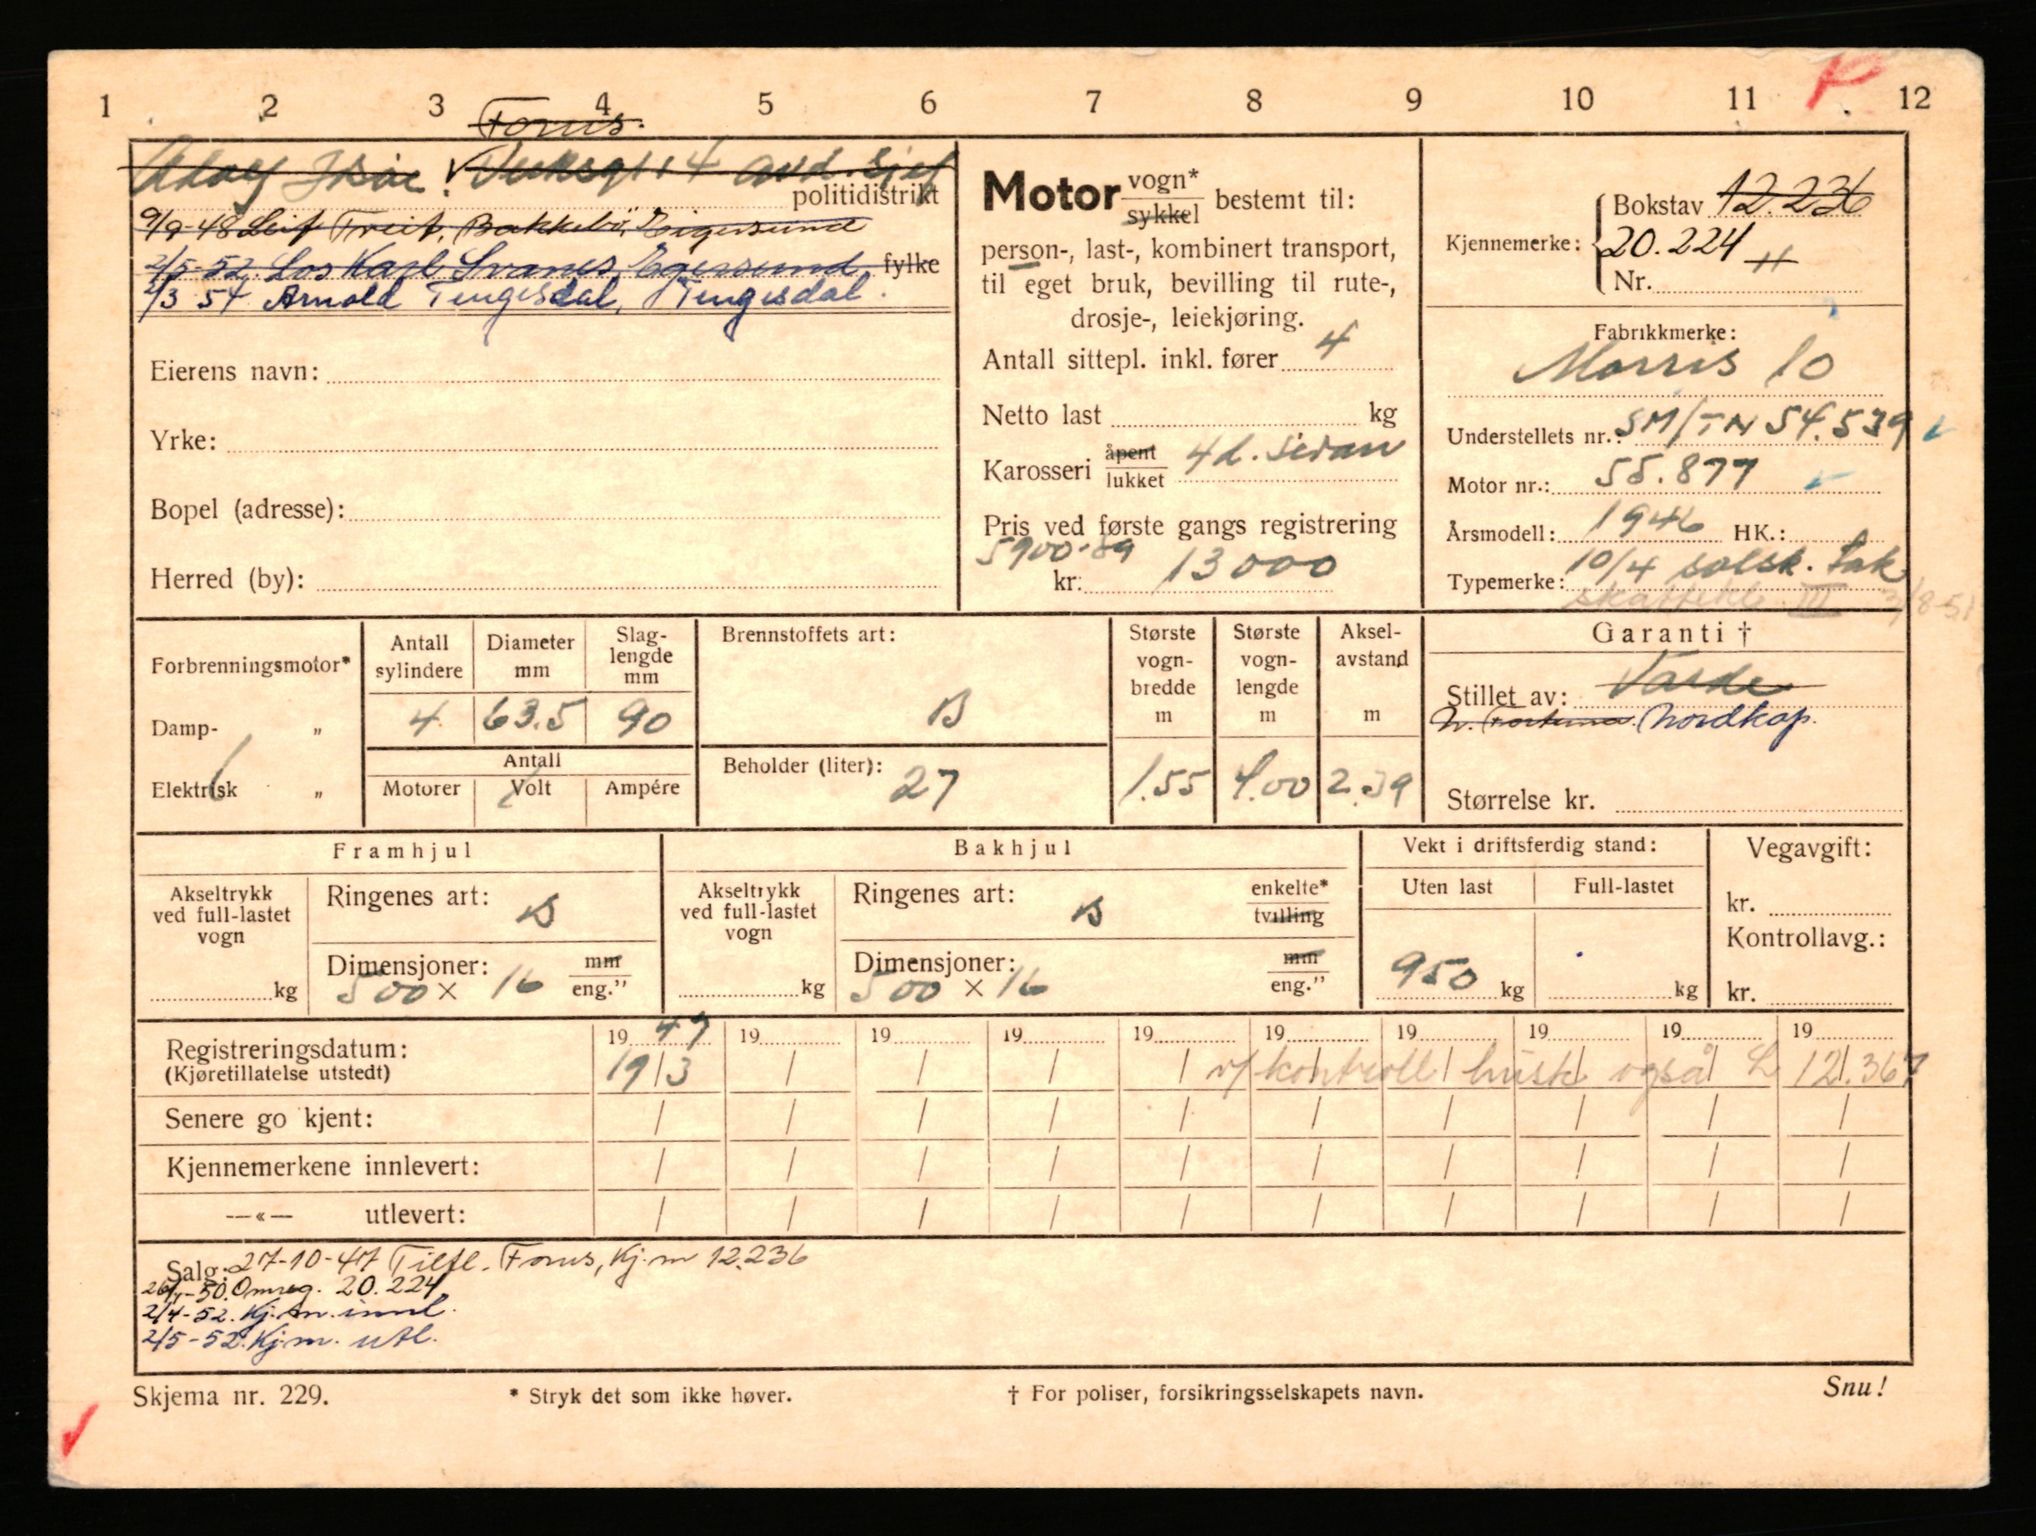 1 2 3 4 5 6 7 8 9 10 11 12
Forus.
Adolf Isac avd. sjef
politidistrikt
9/9-48 Leif Treit, Bakkebö, Eigersund
2/5-52. Los Karl Svanes, Egersund, fylke
1/3 54 Arnold Tengesdal, Tengesdal.
Eierens navn:
Yrke:
Bopel (adresse):
Herred (by):
Motor vogn* sykkel bestemt til:
person-, last-, kombinert transport,
til eget bruk, bevilling til rute-,
drosje-, leiekjøring.
Antall sittepl. inkl. fører 4
Netto last kg
Karosseri åpent lukket 4d. sedan
Pris ved første gangs registrering
5900.89
kr. 13000
Kjennemerke: Bokstav 12.236
20.224
Nr.
Fabrikkmerke:
Morris 10
Understellets nr.: SM/TN 54.539
Motor nr.: 55.877
Årsmodell: 1946 HK.:
Typemerke: 10/4 salsk. Sak
skattekl. III 3/8-51
Forbrenningsmotor*
Damp- "
Elektrisk "
Antall sylindere 4
Diameter mm 63.5
Slag-lengde mm 90
Antall
Motorer Volt Ampére
Brennstoffets art:
B
Beholder (liter): 27
Største vogn-bredde m 1.55
Største vogn-lengde m 4.00
Aksel-avstand m 2.39
Garanti †
Stillet av: Varde
N. Fortuna Nordkap.
Størrelse kr.
Framhjul
Akseltrykk ved full-lastet vogn
kg
Ringenes art: B
Dimensjoner: mm eng."
500 × 16
Bakhjul
Akseltrykk ved full-lastet vogn
kg
Ringenes art: B enkelte* tvilling
Dimensjoner: mm eng."
500 × 16
Vekt i driftsferdig stand:
Uten last Full-lastet
950 kg kg
Vegavgift:
kr.
Kontrollavg.:
kr.
19 47 19 19 19 19 19 19 19 19 19
Registreringsdatum: 19/3 / / / / v/ kontroll husk også L 12.367
(Kjøretillatelse utstedt)
Senere go kjent: / / / / / / / / / /
Kjennemerkene innlevert: / / / / / / / / / /
—«— utlevert: / / / / / / / / / /
Salg: 27-10-47 Tilfl. Forus, Kj.m 12.236
-50. Omreg. 20.224
2/4-52. Kj.m. innl.
2/5-52. Kj.m. utl.
Skjema nr. 229. * Stryk det som ikke høver. † For poliser, forsikringsselskapets navn. Snu!